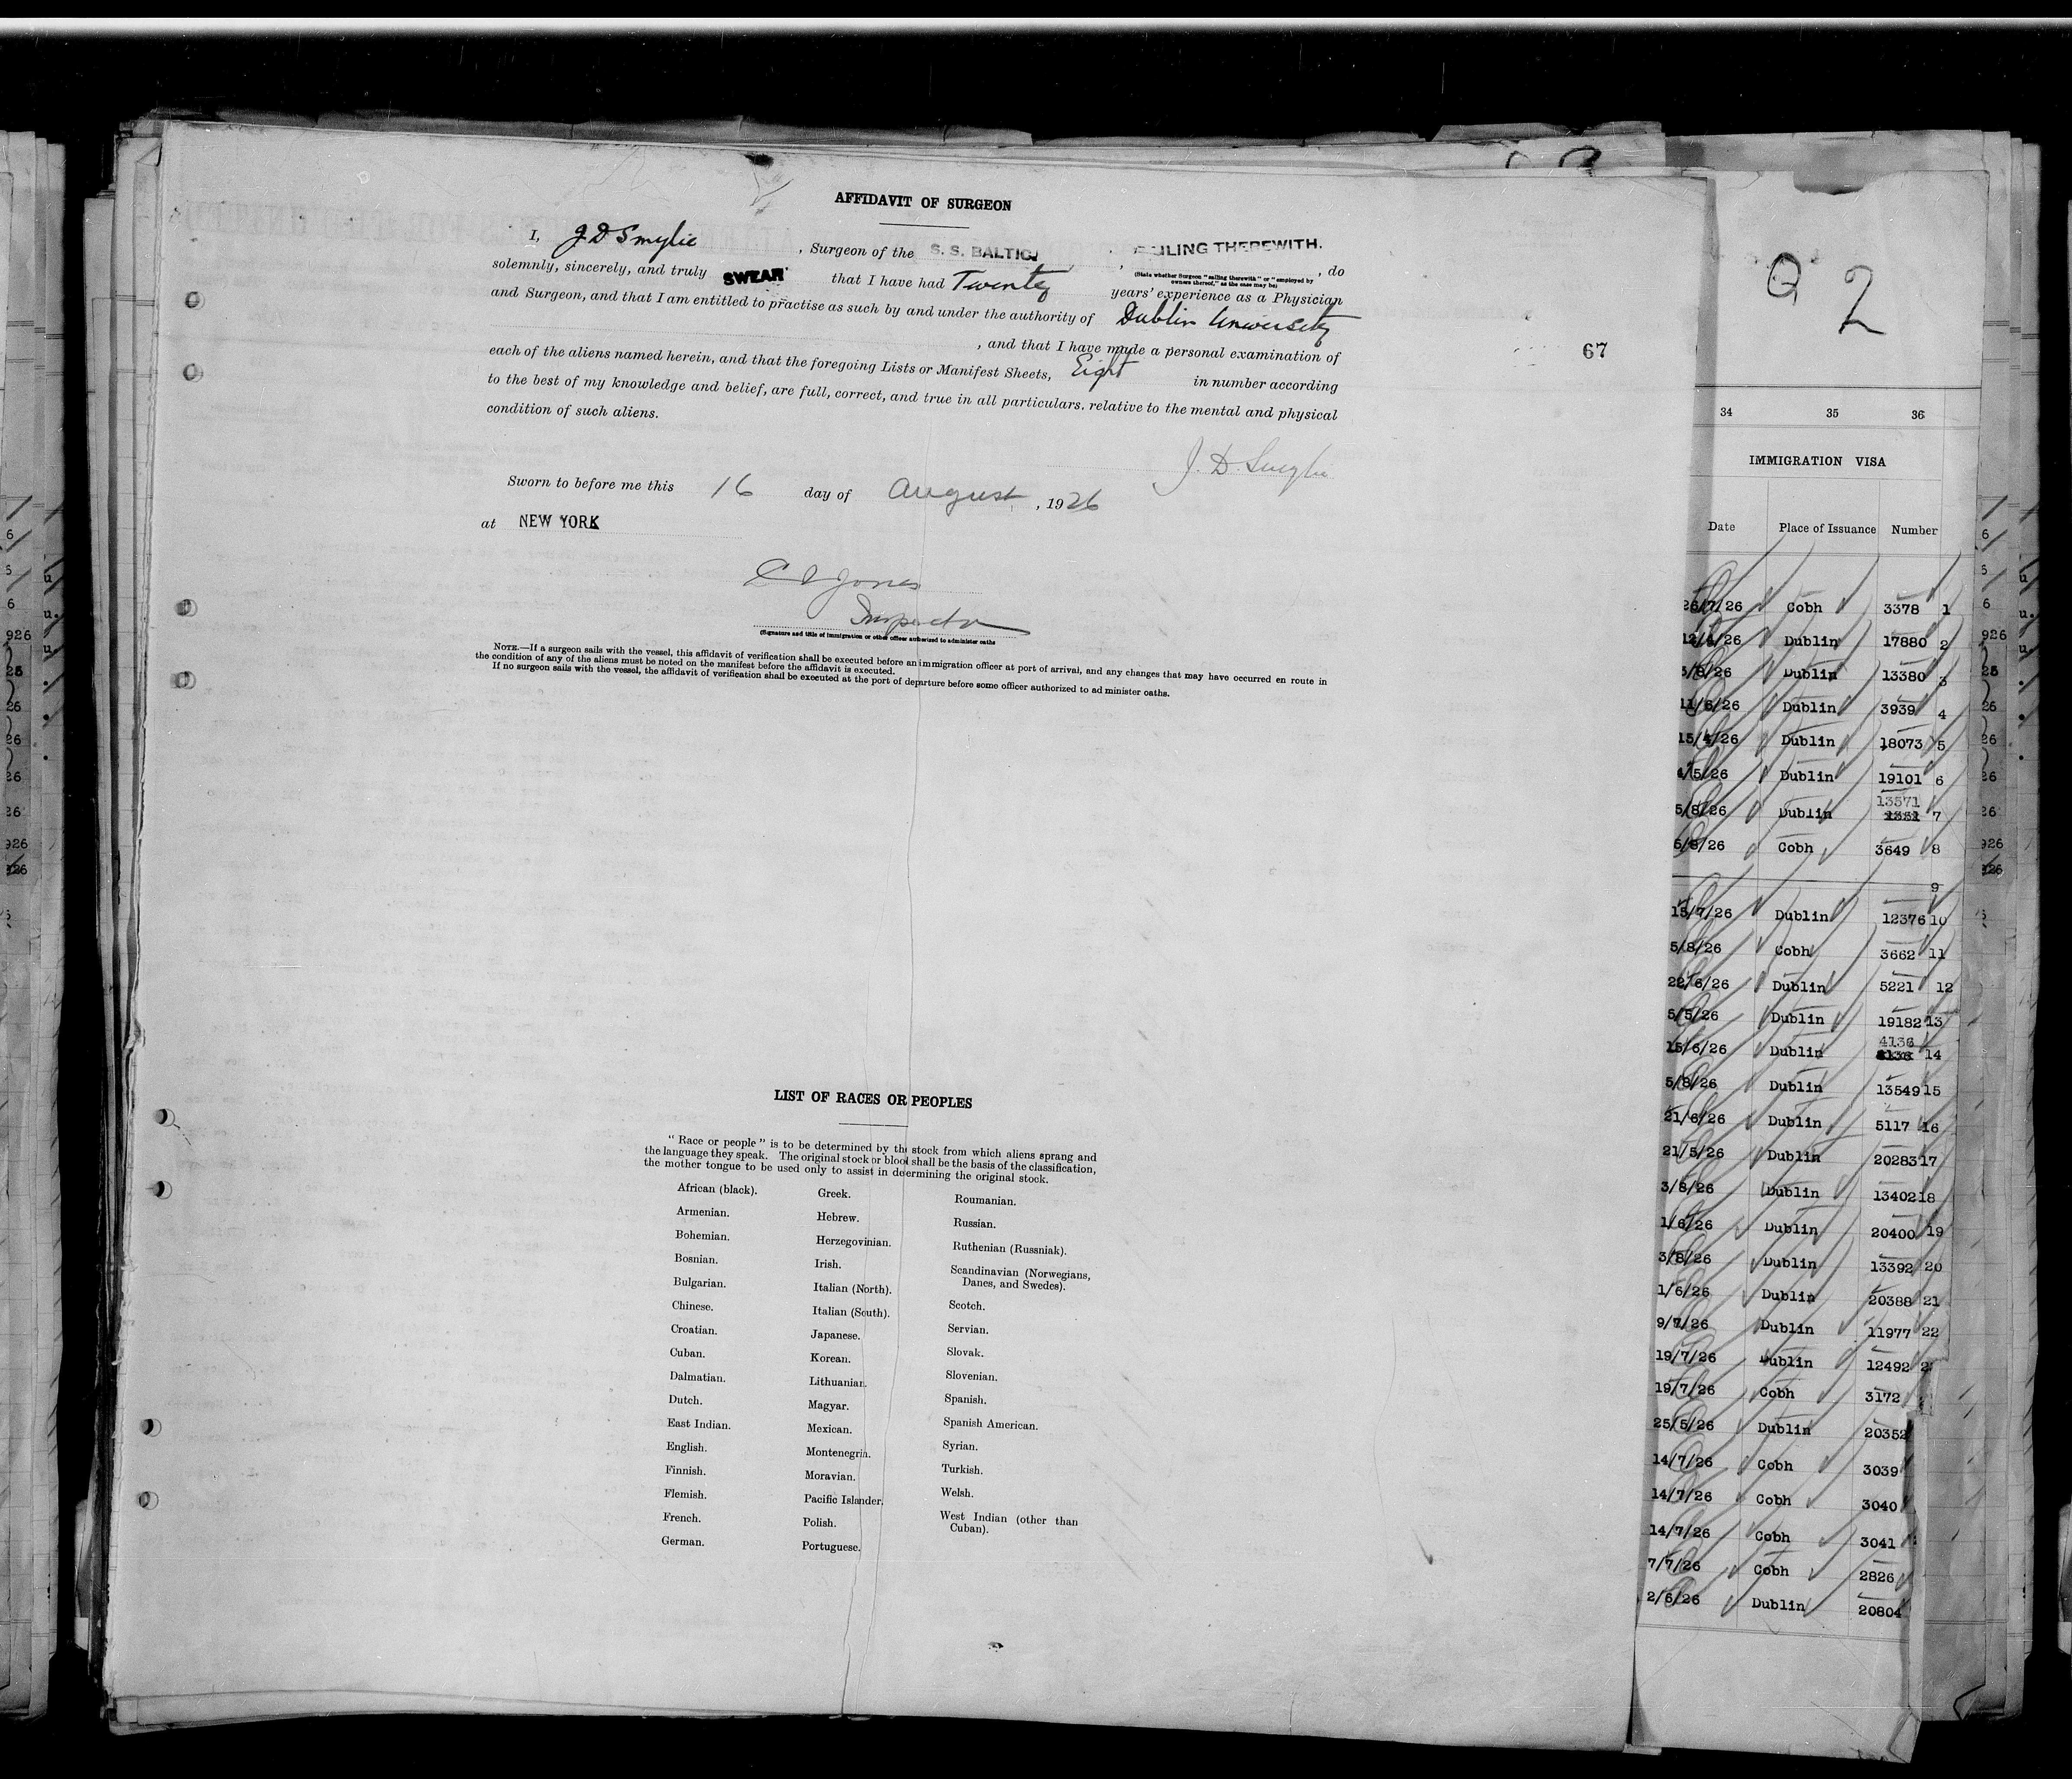 AFFIDAVIT OF SURGEON
I, J D Smylie, Surgeon of the S. S. BALTIC, SAILING THEREWITH.
(State whether Surgeon "sailing therewith" or "employed by owners thereof," as the case may be)
, do
solemnly, sincerely, and truly SWEAR that I have had Twenty years' experience as a Physician
and Surgeon, and that I am entitled to practise as such by and under the authority of Dublin University
, and that I have made a personal examination of
each of the aliens named herein, and that the foregoing Lists or Manifest Sheets, Eight in number according
to the best of my knowledge and belief, are full, correct, and true in all particulars, relative to the mental and physical
condition of such aliens.
J. D. Smylie
Sworn to before me this 16 day of August, 1926
at NEW YORK
Jones
Inspector
(Signature and title of immigration or other officer authorized to administer oaths
NOTE.—If a surgeon sails with the vessel, this affidavit of verification shall be executed before an immigration officer at port of arrival, and any changes that may have occurred en route in
the condition of any of the aliens must be noted on the manifest before the affidavit is executed.
If no surgeon sails with the vessel, the affidavit of verification shall be executed at the port of departure before some officer authorized to administer oaths.
67
LIST OF RACES OR PEOPLES
"Race or people" is to be determined by the stock from which aliens sprang and
the language they speak. The original stock or blood shall be the basis of the classification,
the mother tongue to be used only to assist in determining the original stock.
African (black).
Armenian.
Bohemian.
Bosnian.
Bulgarian.
Chinese.
Croatian.
Cuban.
Dalmatian.
Dutch.
East Indian.
English.
Finnish.
Flemish.
French.
German.
Greek.
Hebrew.
Herzegovinian.
Irish.
Italian (North).
Italian (South).
Japanese.
Korean.
Lithuanian.
Magyar.
Mexican.
Montenegrin.
Moravian.
Pacific Islander.
Polish.
Portuguese.
Roumanian.
Russian.
Ruthenian (Russniak).
Scandinavian (Norwegians,
Danes, and Swedes).
Scotch.
Servian.
Slovak.
Slovenian.
Spanish.
Spanish American.
Syrian.
Turkish.
Welsh.
West Indian (other than
Cuban).
2
34 35 36
IMMIGRATION VISA
Date Place of Issuance Number
26/7/26 Cobh 3378 1
Dublin 17880 2
5/8/26 Dublin 13380 3
11/6/26 Dublin 3939 4
15/4/26 Dublin 18073 5
4/5/26 Dublin 19101 6
5/8/26 Dublin 13571 7
5/8/26 Cobh 3649 8
9
15/7/26 Dublin 12376 10
5/8/26 Cobh 3662 11
22/6/26 Dublin 5221 12
5/5/26 Dublin 19182 13
15/6/26 Dublin 4136 14
5/8/26 Dublin 13549 15
21/6/26 Dublin 5117 16
21/5/26 Dublin 20283 17
3/8/26 Dublin 13402 18
1/6/26 Dublin 20400 19
3/8/26 Dublin 13392 20
1/6/26 Dublin 20388 21
9/7/26 Dublin 11977 22
19/7/26 Dublin 12492
19/7/26 Cobh 3172
25/5/26 Dublin 20352
14/7/26 Cobh 3039
14/7/26 Cobh 3040
14/7/26 Cobh 3041
7/7/26 Cobh 2826
2/6/26 Dublin 20804